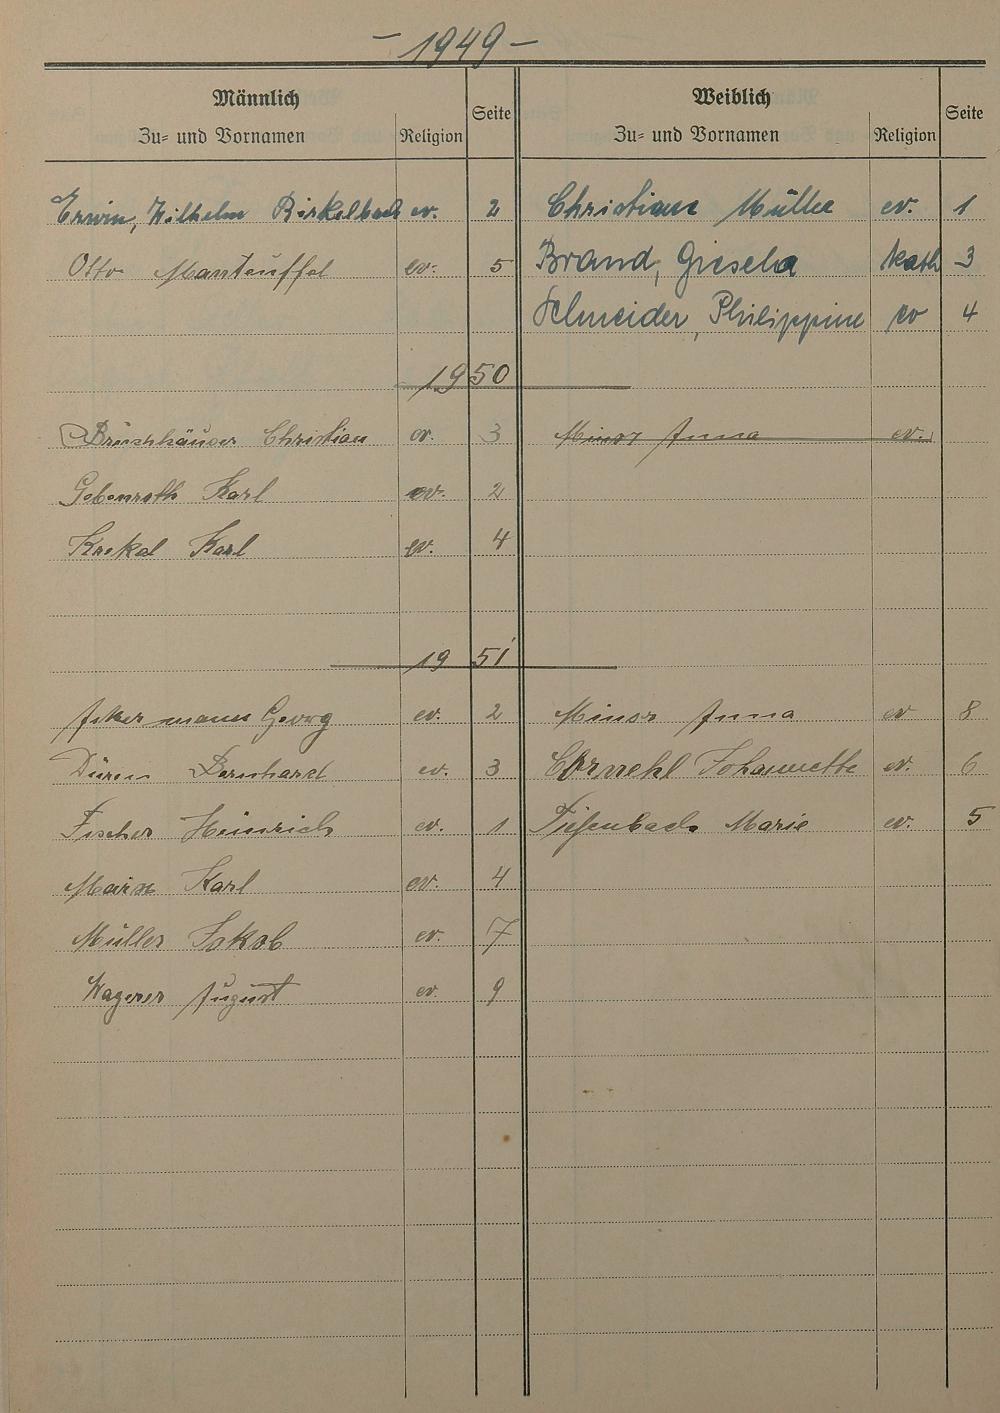 - 1949 -
Männlich Weiblich
Zu- und Vornamen Religion Seite Zu- und Vornamen Religion Seite
Erwin, Wilhelm Birkelbach ev. 2 Christiane Müller ev. 1
Otto Manteuffel ev. 5 Brand, Giesela kath 3
Schneider, Philippine ev 4
1950
Brühhäuser Christian ev. 3 Minor Anna ev.
Gebenroth Karl ev. 2
Krekel Karl ev. 4
1951
Ackermann Georg ev. 2 Minor Anna ev 8
Düren Bernhard ev. 3 Cornehl Johannette ev. 6
Fischer Heinrich ev. 1 Tiefenbach Marie ev. 5
Karl ev. 4
Müller Jakob ev. 7
Wagner August ev. 9